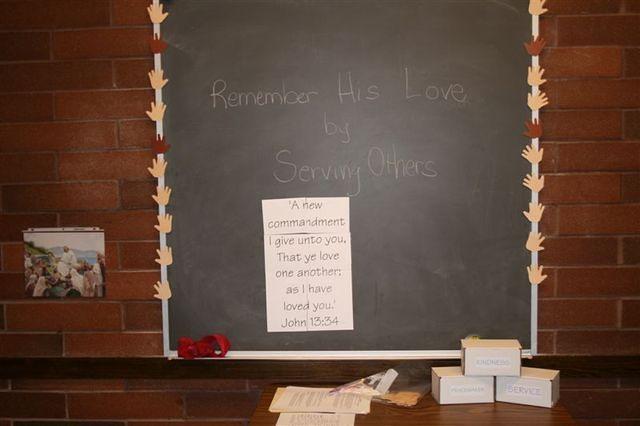 Remember His Love
by
Serving Others
'A new
commandment
I give unto you,
That ye love
one another;
as I have
loved you.'
John 13:34
KINDNESS
PEACEMAKER
SERVICE